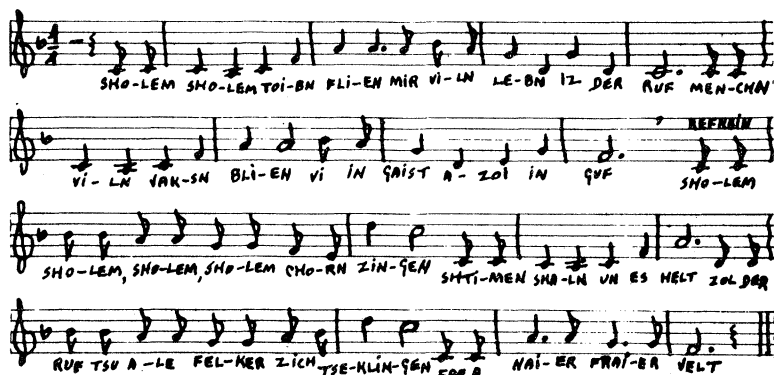 SHO-LEM SHO-LEM TOI-BN FLI-EN MIR VI-LN LE-BN IZ DER RUF MEN-CHN
VI-LN VAK-SN BLI-EN VI IN GAIST A-ZOI IN GUF REFREIN SHO-LEM
SHO-LEM, SHO-LEM, SHO-LEM CHO-RN ZIN-GEN SHTI-MEN SHA-LN UN ES HELT ZOL DER
RUF TSU A-LE FEL-KER ZICH TSE-KLIN-GEN NAI-ER FRAI-ER VELT